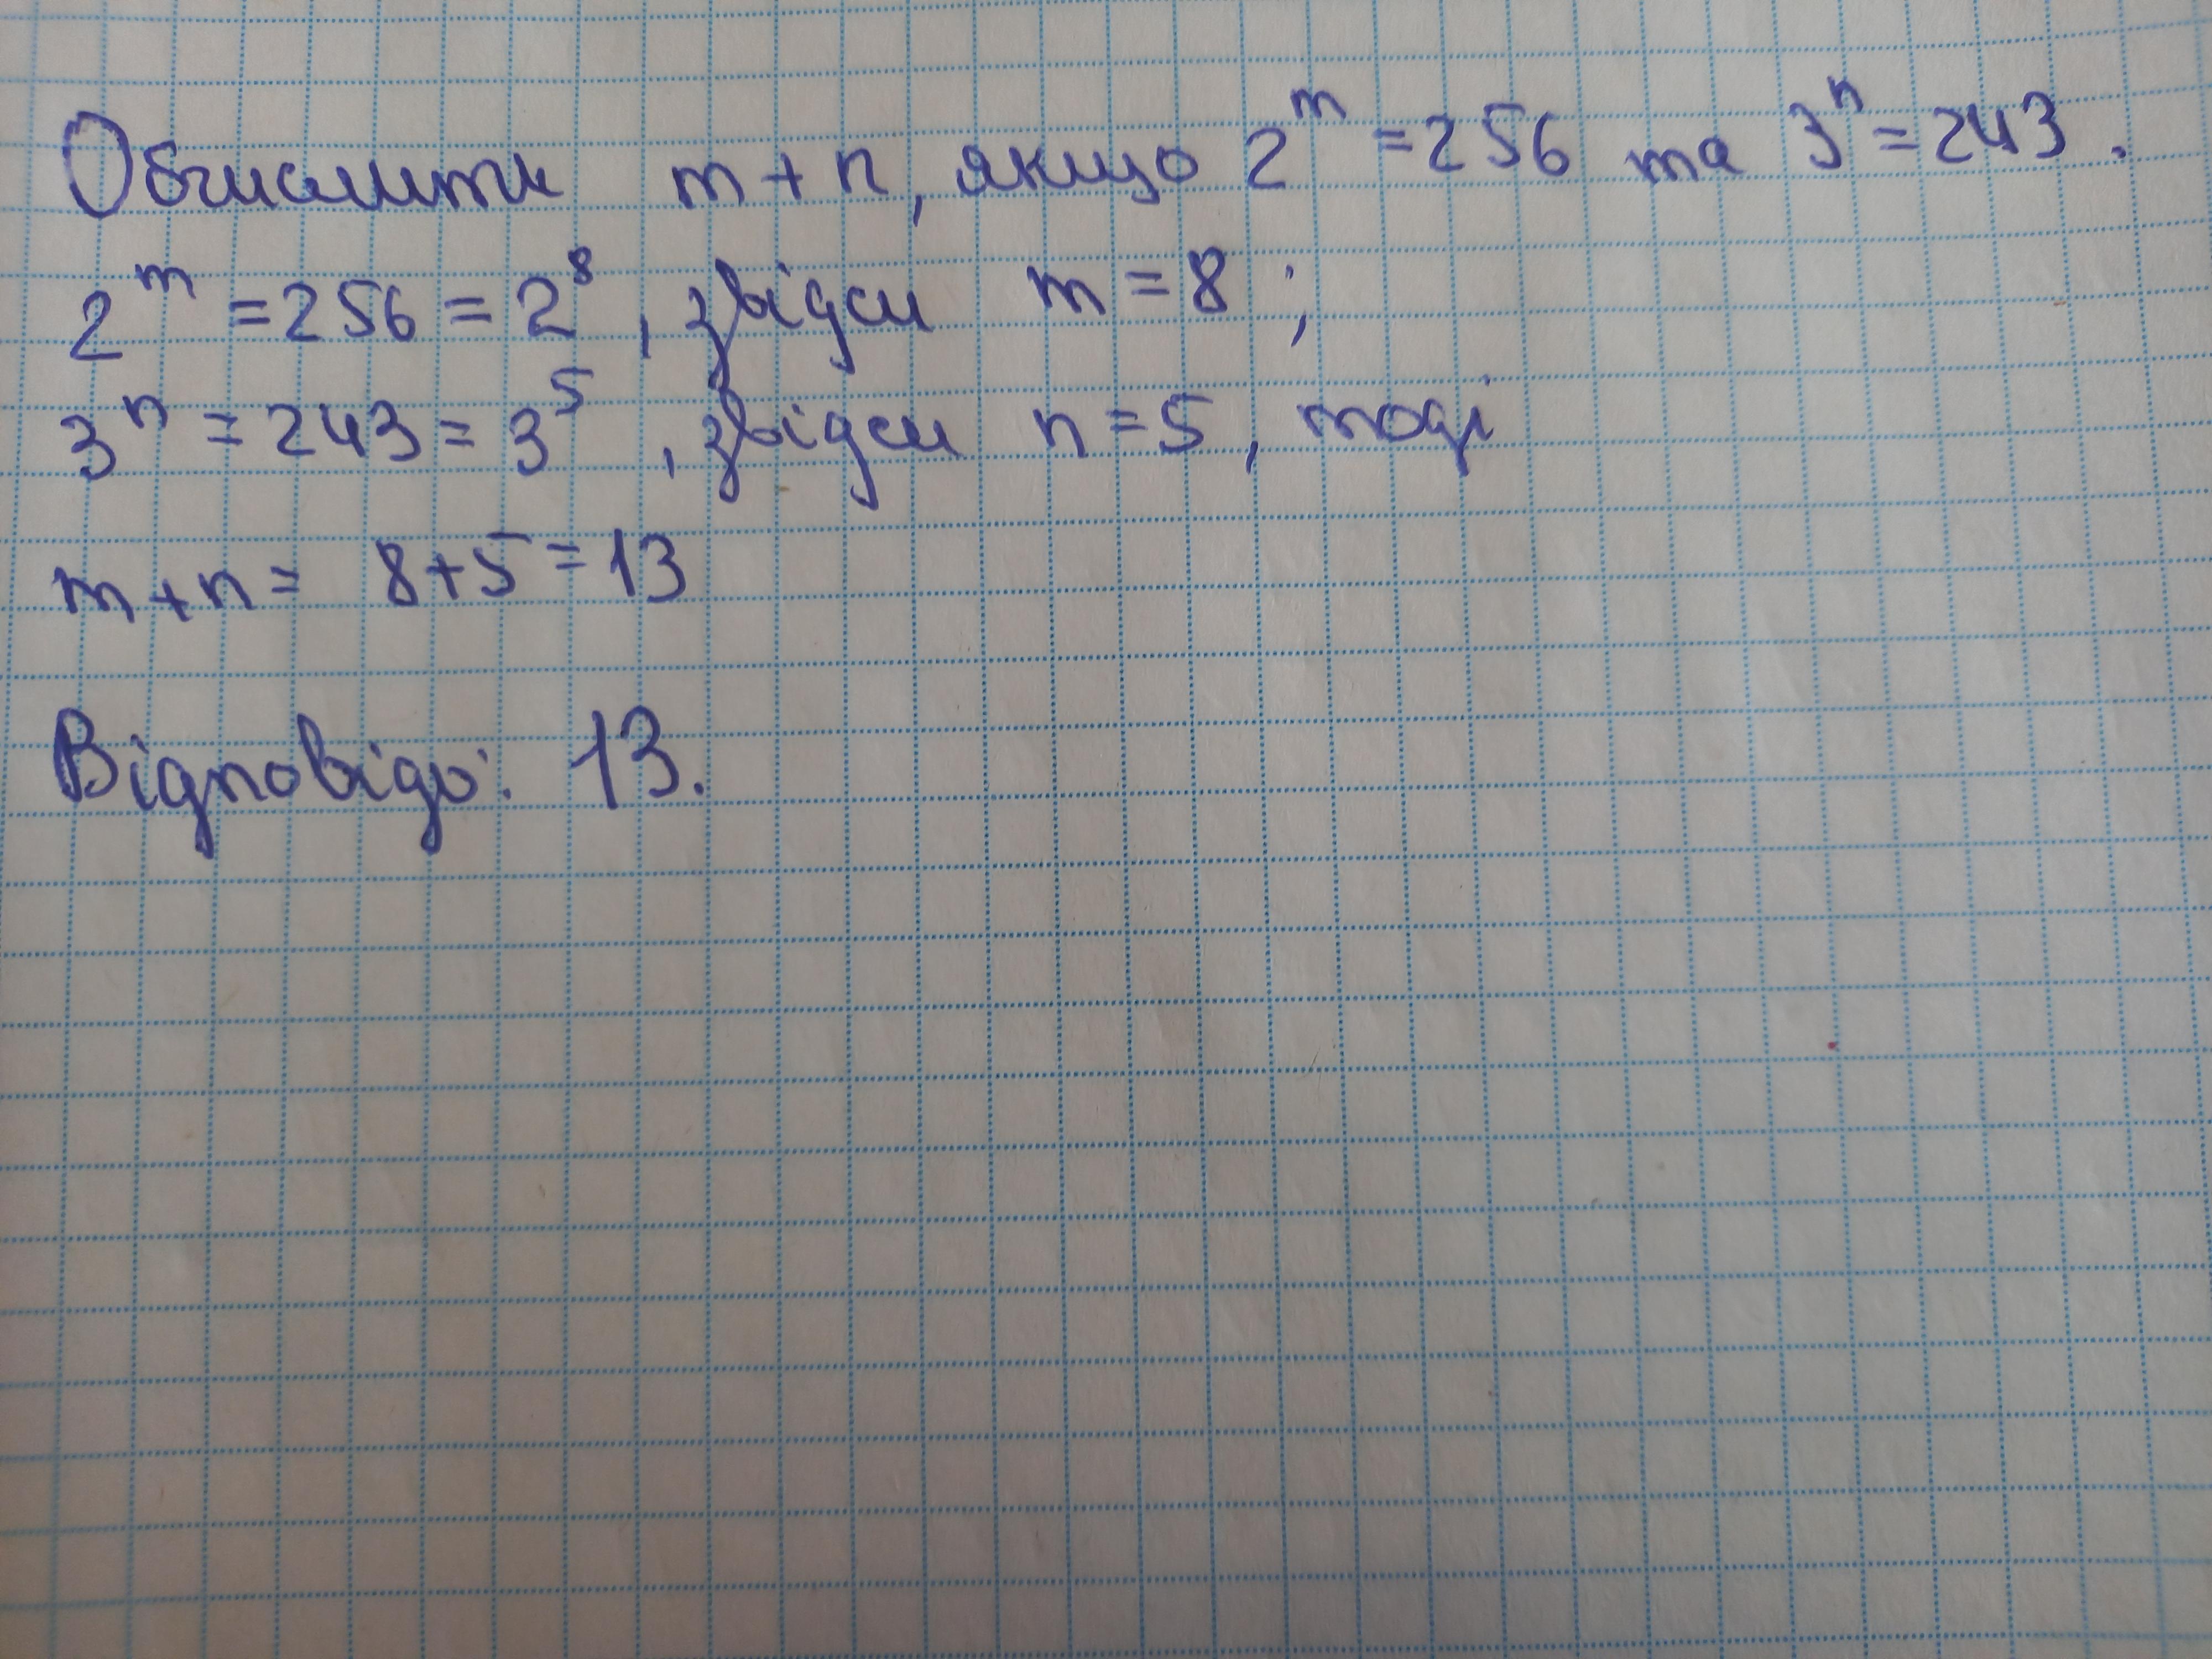 Обчислити m+n, якщо 2^m = 256 та 3^n = 243.
2^m = 256 = 2^8, звідси m = 8;
3^n = 243 = 3^5, звідси n = 5, тоді
m+n = 8+5 = 13
Відповідь: 13.